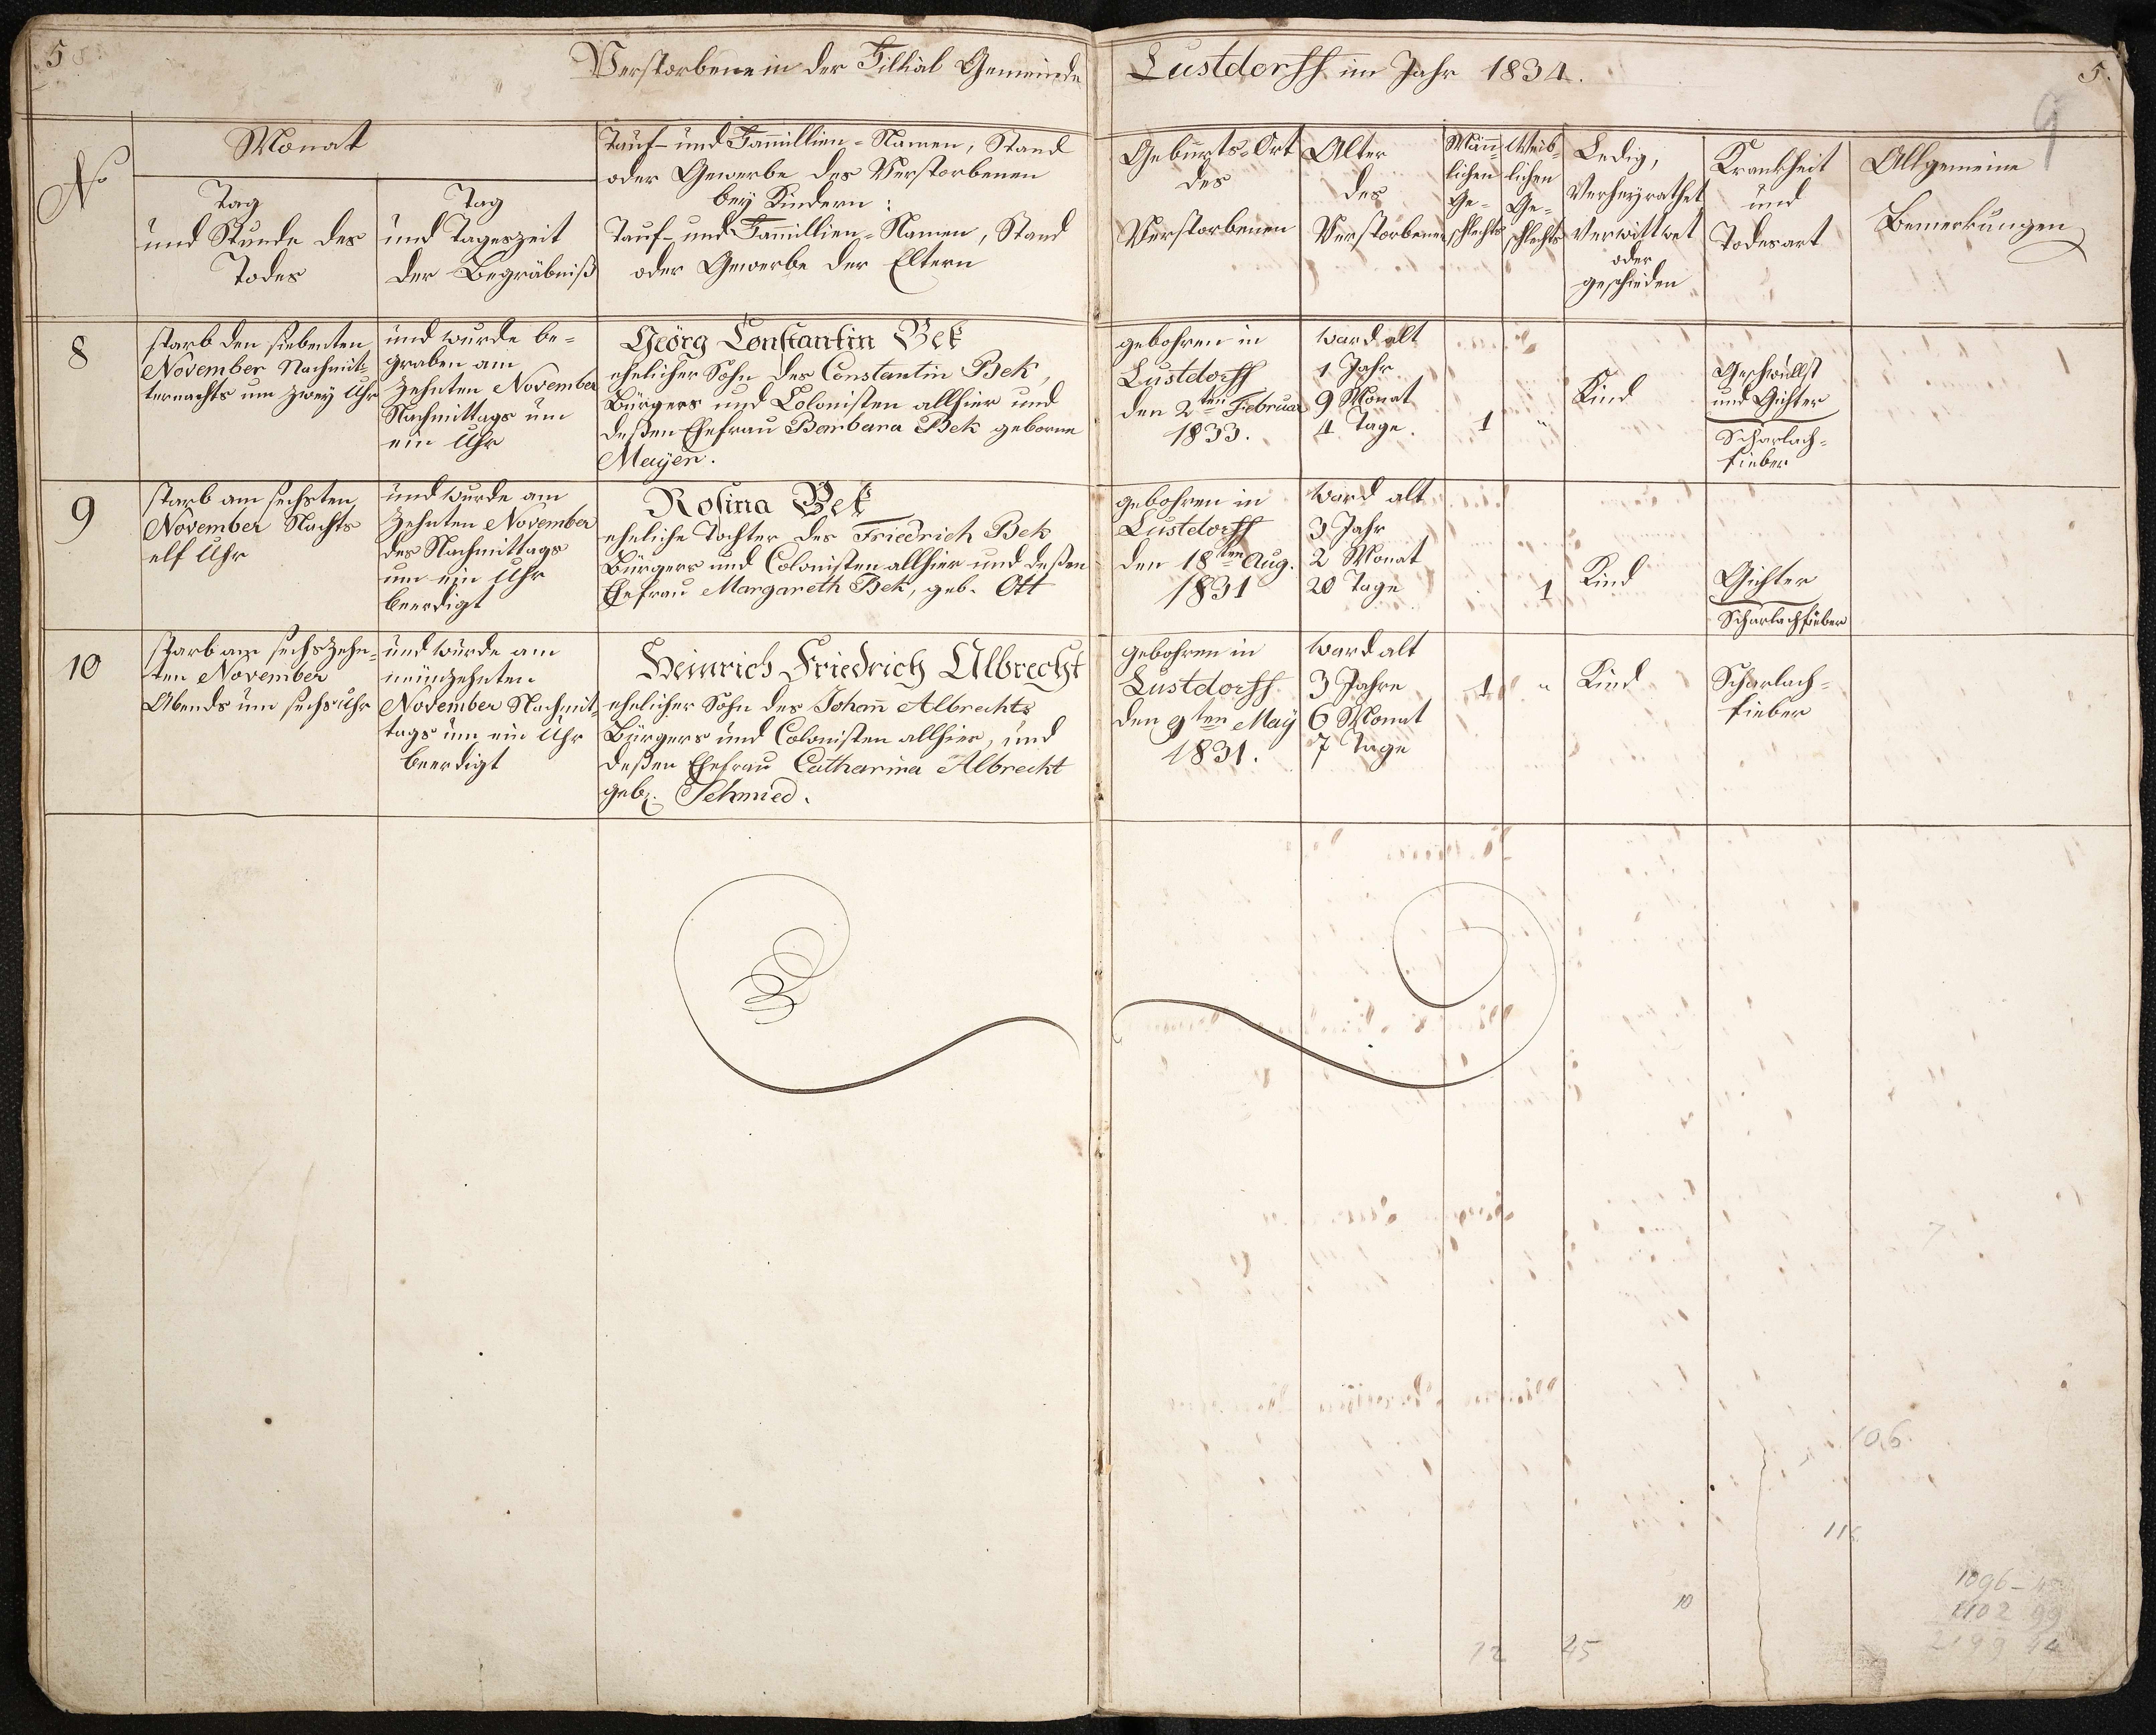 5
Verstorbene in der Fillial Gemeinde
Lustdorff im Jahr 1834.
5.
9
No
Monat
Tag
und Stunde des
Todes
Tag
und Tageszeit
der Begräbniß
Tauf- und Familllien-Namen, Stand
oder Gewerbe des Verstorbenen
bey Kindern:
Tauf- und Familllien-Namen, Stand
oder Gewerbe der Eltern
Geburts-Ort
des
Verstorbenen
Alter
des
Verstorbenen
Män̄-
lichen
Ge-
schlechts
Weib-
lichen
Ge-
schlechts
Ledig,
Verheyrathet
Verwittwet
oder
geschieden
Krankheit
und
Todesart
Allgemeine
Bemerkungen
8
starb den siebenten
November Nachmit-
ternachts um zwey Uhr
und wurde be-
graben am
zehnten November
Nachmittags um
ein Uhr
Georg Constantin Bek
ehelicher Sohn des Constantin Bek,
Bürgers und Colonisten allhier und
deßen Ehefrau Barbara Bek geborne
Mayer.
gebohren in
Lustdorff
den 2ten Februar
1833.
ward alt
1 Jahr
9 Monat
4 Tage.
1
"
Kind
Geschwullst
und Gichter
Scharlach-
fieber
9
starb am sechsten
November Nachts
elf Uhr
und wurde am
zehnten November
des Nachmittags
um ein Uhr
beerdigt
Rosina Bek
eheliche Tochter des Friedrich Bek
Bürgers und Colonisten allhier und deßen
Ehefrau Margareth Bek, geb. Ott
gebohren in
Lustdorff
den 18ten Aug.
1831
ward alt
3 Jahr
2 Monat
20 Tage
1
Kind
Gichter
Scharlachfieber
10
starb am sechszehn-
ten November
Abends um sechs Uhr
und wurde am
neunzehnten
November Nachmit-
tags um ein Uhr
beerdigt
Heinrich Friedrich Albrecht
ehelicher Sohn des Johan̄ Albrechts
Bürgers und Colonisten allhier, und
deßen Ehefrau Catharina Albrecht
geb. Schmied.
gebohren in
Lustdorff
den 9ten May
1831.
ward alt
3 Jahre
6 Monat
7 Tage
1
"
Kind
Scharlach-
fieber
106.
10
12 45
1096
1102 99
2199 44